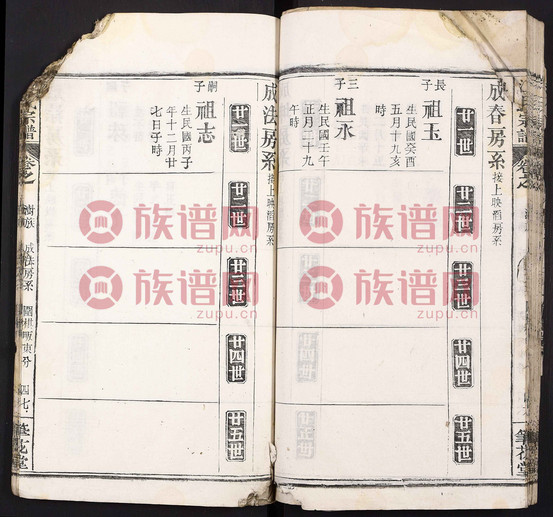 成春房系
接上映酒房系
廿一世
廿二世
廿三世
廿四世
廿五世
長子
祖玉
生民國癸酉
五月十九亥
時
三子
祖永
生民國壬午
正月二十九
午時
筆花堂
成法房系
接上映酒房系
廿一世
廿二世
廿三世
廿四世
廿五世
嗣子
祖志
生民國丙子
年十二月廿
七日子時
宗譜
卷之
成法房系
四七
筆花堂
族谱网
zupu.cn
族谱网
zupu.cn
族谱网
zupu.cn
族谱网
zupu.cn